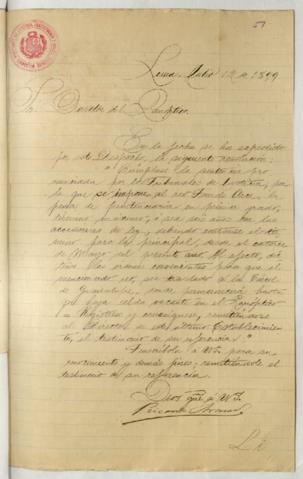 Lima, Julio 12 de 1899
Sr. Director del Panóptico
En la fecha se ha expedido
por este Despacho, la siguiente resolución:
"Cúmplase la sentencia pro-
nunciada por los Tribunales de Justicia, por
la que se impone al reo Juan de Dios
la pena de penitenciaría en primer grado,
término máximo, ó sea seis años con las
accesorias de ley, debiendo contarse el tér-
mino para la principal desde el catorce
de Marzo del presente año. Al efecto, díc-
tense las órdenes convenientes para que el
mencionado reo, sea trasladado á la Cárcel
de Guadalupe, donde permanecerá hasta
que haya celda vacante en el Panóptico
Regístrese y comuníquese, remitiéndose
al Director de este último Establecimien-
to, el testimonio de su referencia."
Trascríbola á US. para su
conocimiento y demás fines, remitiéndole el
testimonio de su referencia.
Dios gue. á US.
Ricardo